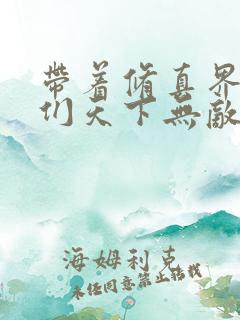 帶着脩真界
们天下無敵
海姆利克
未经同意禁止转载